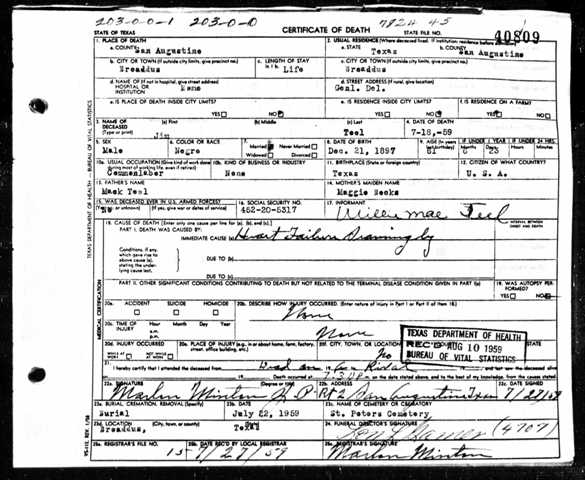 203-0-0-1 203-0-0
7824 45
STATE OF TEXAS
CERTIFICATE OF DEATH
STATE FILE NO. 40809
1. PLACE OF DEATH
a. COUNTY
San Augustine
2. USUAL RESIDENCE (Where deceased lived. If institution: residence before admission)
a. STATE
Texas
b. COUNTY
San Augustine
b. CITY OR TOWN (If outside city limits, give precinct no.)
Broaddus
c. LENGTH OF STAY
Life
c. CITY OR TOWN (If outside city limits, give precinct no.)
Broaddus
d. NAME OF (If not in hospital, give street address)
HOSPITAL OR
INSTITUTION
Home
d. STREET ADDRESS (If rural, give location)
Genl. Del.
e. IS PLACE OF DEATH INSIDE CITY LIMITS?
YES NO
e. IS RESIDENCE INSIDE CITY LIMITS?
YES NO
f. IS RESIDENCE ON A FARM?
YES NO
3. NAME OF DECEASED
(Type or print)
(a) First
Jim
(b) Middle
(c) Last
Teel
4. DATE OF DEATH
7-18,-59
5. SEX
Male
6. COLOR OR RACE
Negro
7. Married Never Married
Widowed Divorced
8. DATE OF BIRTH
Dec. 21, 1897
9. AGE
61
IF UNDER 1 YEAR
IF UNDER 24 HRS
10a. USUAL OCCUPATION (Give kind of work done
during most of working life, even if retired)
10b. KIND OF BUSINESS OR INDUSTRY
None
11. BIRTHPLACE (State or foreign country)
Texas
12. CITIZEN OF WHAT COUNTRY?
U. S. A.
13. FATHER'S NAME
Mack Teel
14. MOTHER'S MAIDEN NAME
Maggie Hocks
15. WAS DECEASED EVER IN U.S. ARMED FORCES?
(Yes, no, or unknown) (If yes, give war or dates of service)
No
16. SOCIAL SECURITY NO.
462-20-5317
17. INFORMANT
Willie mae Teel
18. CAUSE OF DEATH [Enter only one cause per line for (a), (b), and (c).]
PART I. DEATH WAS CAUSED BY:
IMMEDIATE CAUSE (a)
Heart Failure Seamingly
INTERVAL BETWEEN
ONSET AND DEATH
Conditions, if any,
which gave rise to
above cause (a),
stating the under-
lying cause last.
DUE TO (b)
DUE TO (c)
PART II. OTHER SIGNIFICANT CONDITIONS CONTRIBUTING TO DEATH BUT NOT RELATED TO THE TERMINAL DISEASE CONDITION GIVEN IN PART I(a)
19. WAS AUTOPSY PERFORMED?
YES NO
20a. ACCIDENT SUICIDE HOMICIDE
20b. DESCRIBE HOW INJURY OCCURRED. (Enter nature of injury in Part I or Part II of item 18.)
None
20c. TIME OF INJURY
Hour Month Day Year
None
20d. INJURY OCCURRED
WHILE AT WORK NOT WHILE AT WORK
20e. PLACE OF INJURY (e.g., in or about home, farm, factory, street, office building, etc.)
20f. CITY, TOWN, OR LOCATION
No
TEXAS DEPARTMENT OF HEALTH
REC'D AUG 10 1959
BUREAU OF VITAL STATISTICS
21. I hereby certify that I attended the deceased from
Death occurred at
on the date stated above, and to the best of my knowledge, from the causes stated.
22a. SIGNATURE
(Degree or title)
Marlon Minton J. P.
22b. ADDRESS
Rt 2 San Augustine Texas
22c. DATE SIGNED
7/27/59
23a. BURIAL, CREMATION, REMOVAL (Specify)
Burial
23b. DATE
July 22, 1959
23c. NAME OF CEMETERY OR CREMATORY
St. Peters Cemetery
23d. LOCATION (City, town, or county) (State)
Broaddus, Texas
24. FUNERAL DIRECTOR'S SIGNATURE
(4707)
25a. REGISTRAR'S FILE NO.
15
25b. DATE REC'D BY LOCAL REGISTRAR
7/27/59
25c. REGISTRAR'S SIGNATURE
Marlon Minton
TEXAS DEPARTMENT OF HEALTH—BUREAU OF VITAL STATISTICS
MEDICAL CERTIFICATION